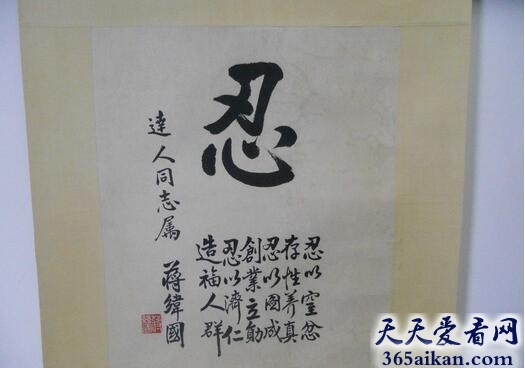 忍
忍以窒忿
存性養真
忍以圖成
創業立勛
忍以濟仁
造福人群
達人同志属
蔣緯國
天天爱看网
365aikan.com